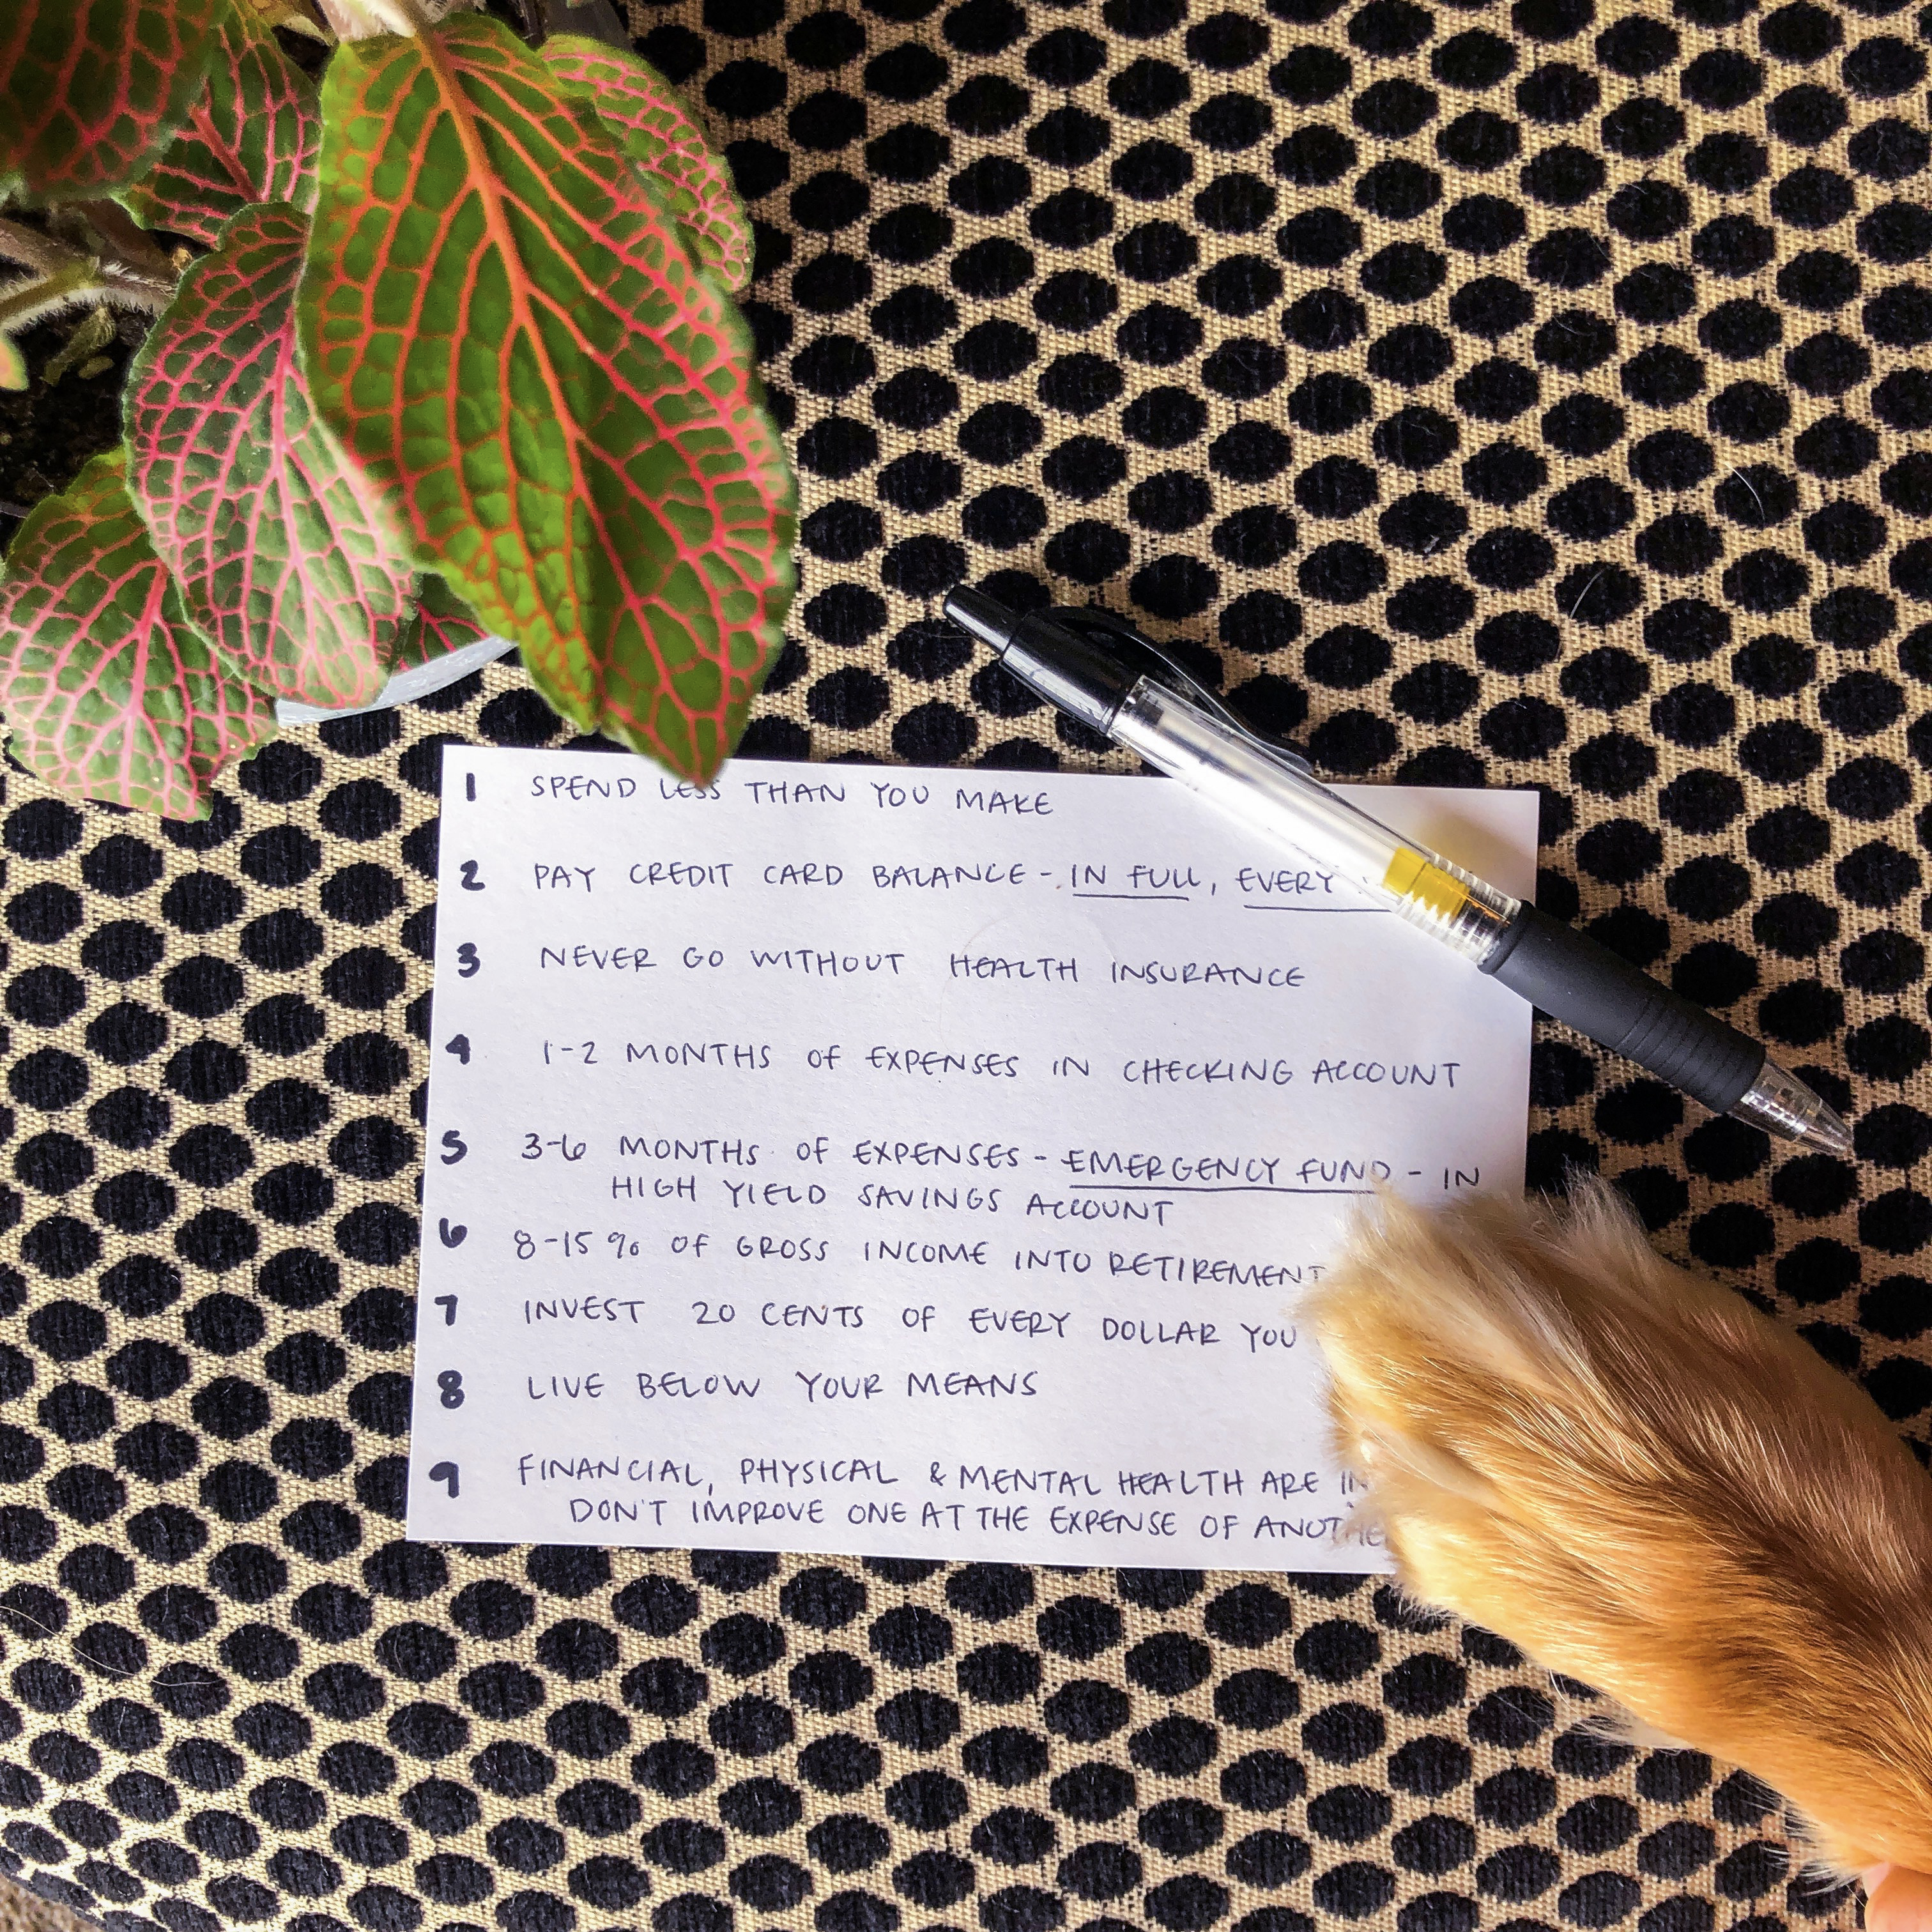 1 SPEND LESS THAN YOU MAKE
2 PAY CREDIT CARD BALANCE - IN FULL, EVERY
3 NEVER GO WITHOUT HEALTH INSURANCE
4 1-2 MONTHS OF EXPENSES IN CHECKING ACCOUNT
5 3-6 MONTHS OF EXPENSES - EMERGENCY FUND - IN
HIGH YIELD SAVINGS ACCOUNT
6 8-15% OF GROSS INCOME INTO RETIREMENT
7 INVEST 20 CENTS OF EVERY DOLLAR YOU
8 LIVE BELOW YOUR MEANS
9 FINANCIAL, PHYSICAL & MENTAL HEALTH ARE
DON'T IMPROVE ONE AT THE EXPENSE OF